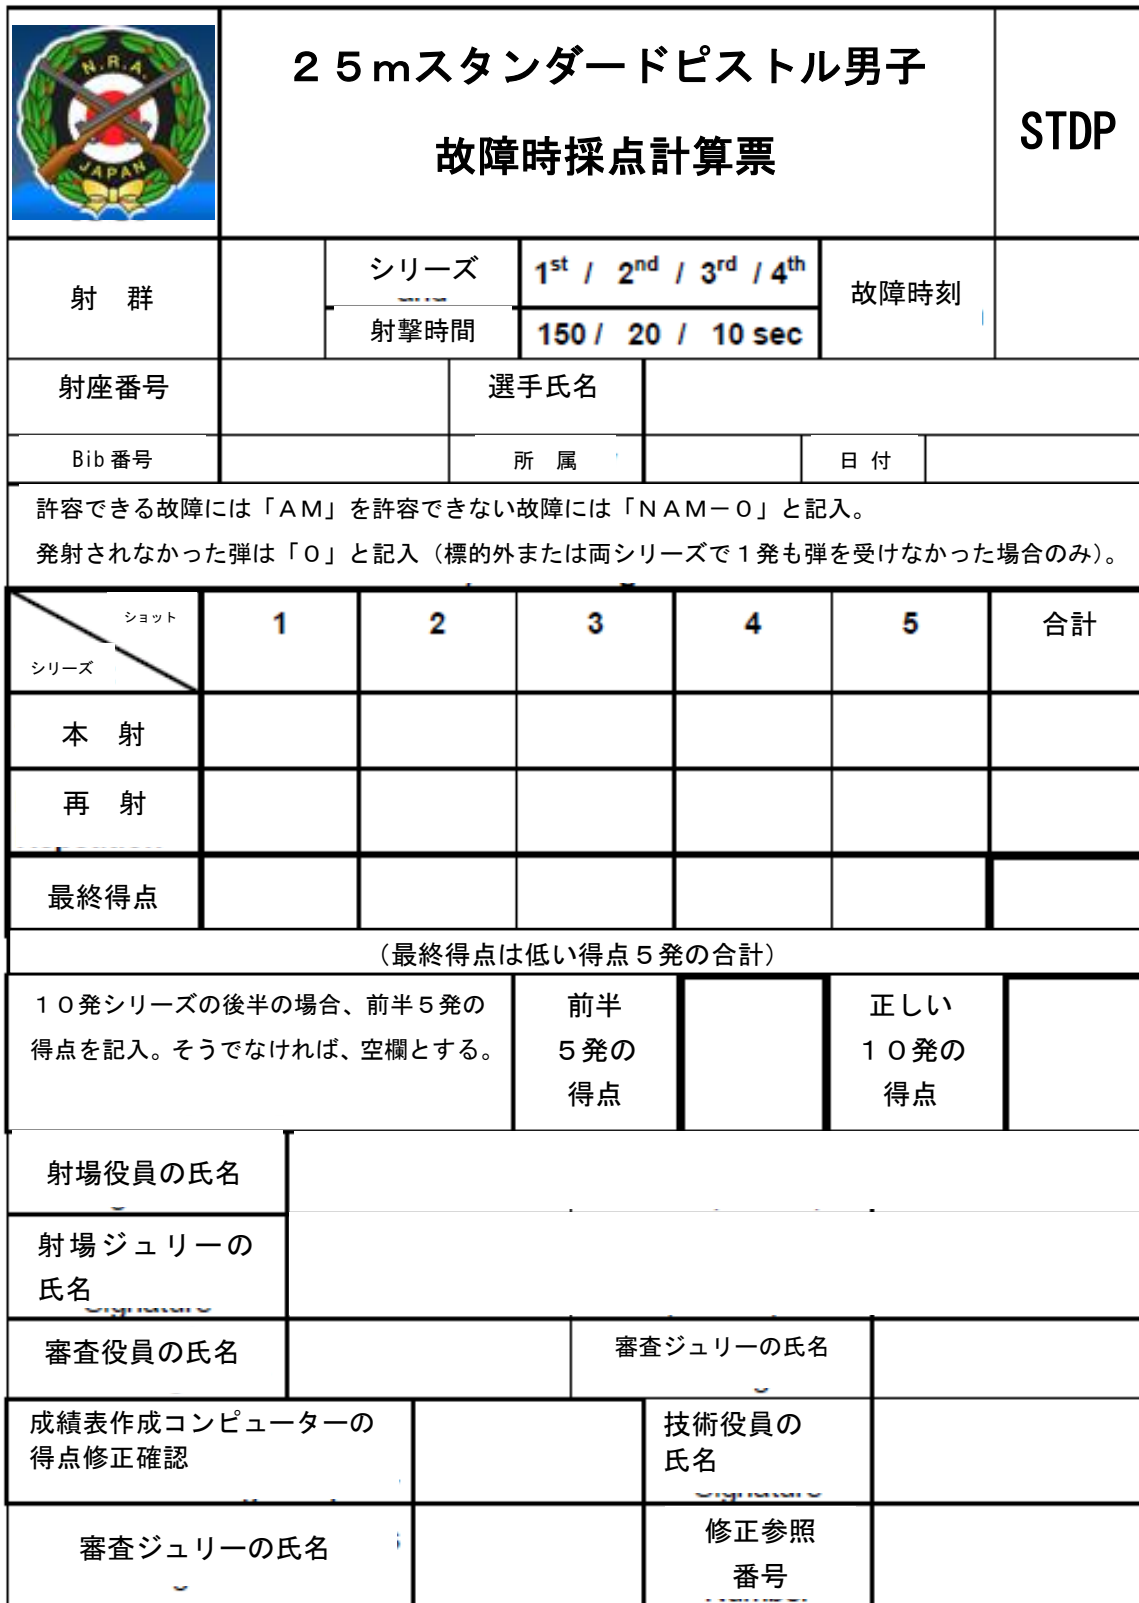 N.R.A.
JAPAN
25mスタンダードピストル男子
故障時採点計算票
STDP
射 群
シリーズ
1st / 2nd / 3rd / 4th
故障時刻
射撃時間
150 / 20 / 10 sec
射座番号
選手氏名
Bib番号
所 属
日 付
許容できる故障には「AM」を許容できない故障には「NAM-0」と記入。
発射されなかった弾は「0」と記入（標的外または両シリーズで1発も弾を受けなかった場合のみ）。
ショット
シリーズ
1 2 3 4 5 合計
本 射
再 射
最終得点
（最終得点は低い得点5発の合計）
10発シリーズの後半の場合、前半5発の
得点を記入。そうでなければ、空欄とする。
前半
5発の
得点
正しい
10発の
得点
射場役員の氏名
射場ジュリーの
氏名
審査役員の氏名
審査ジュリーの氏名
成績表作成コンピューターの
得点修正確認
技術役員の
氏名
審査ジュリーの氏名
修正参照
番号